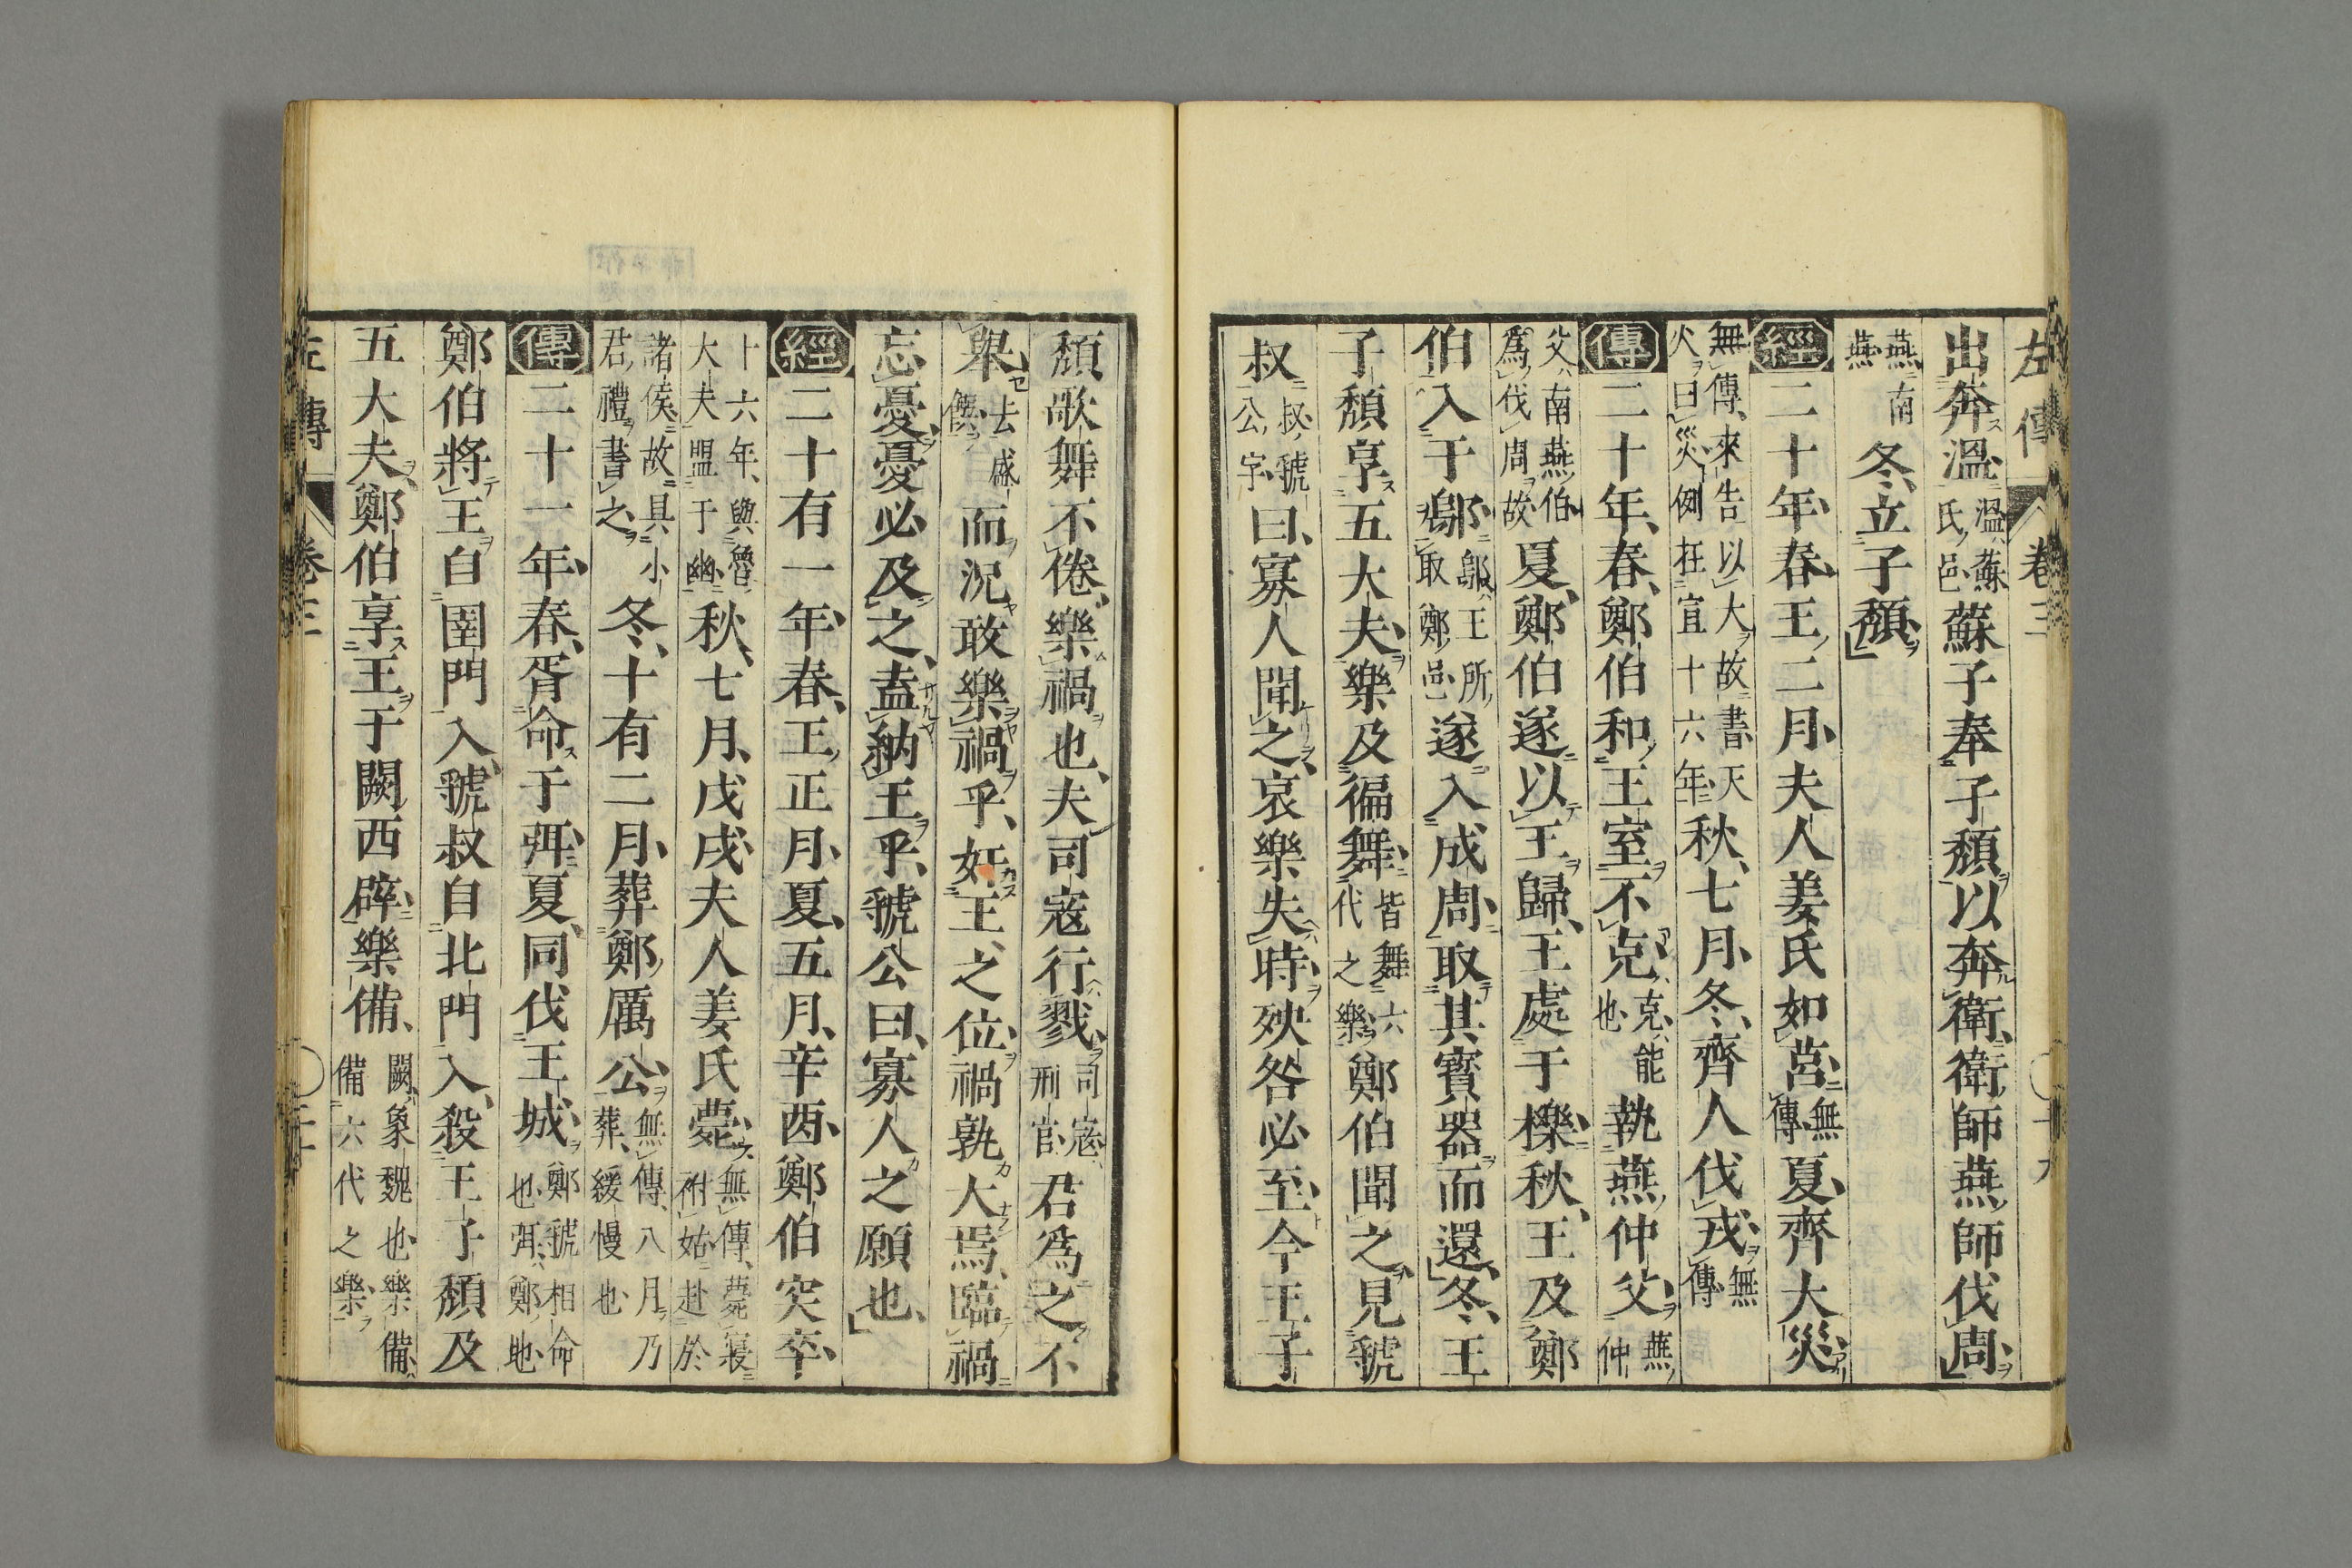 左傳 卷三 十九
出奔溫溫蘇氏邑蘇子奉子頹以奔衛衛師燕師伐周
燕南燕冬立子頹
經二十年春王二月夫人姜氏如莒無傳夏齊大災
無傳來告以大故書天火曰災例在宣十六年秋七月冬齊人伐戎無傳
傳二十年春鄭伯和王室不克克能也執燕仲父燕仲
父南燕伯爲伐周故夏鄭伯遂以王歸王處于櫟秋王及鄭
伯入于鄔鄔王所取鄭邑遂入成周取其寶器而還冬王
子頹享五大夫樂及徧舞皆舞六代之樂鄭伯聞之見虢
叔叔虢公字曰寡人聞之哀樂失時殃咎必至今王子
頹歌舞不倦樂禍也夫司寇行戮司寇刑官君爲之不
舉去盛饌而況敢樂禍乎奸王之位禍孰大焉臨禍
忘憂憂必及之盍納王乎虢公曰寡人之願也
經二十有一年春王正月夏五月辛酉鄭伯突卒
十六年與魯大夫盟于幽秋七月戊戌夫人姜氏薨無傳薨寢祔姑赴於
諸侯故具小君禮書之冬十有二月葬鄭厲公無傳八月乃葬緩慢也
傳二十一年春胥命于弭夏同伐王城鄭虢相命也弭鄭地
鄭伯將王自圉門入虢叔自北門入殺王子頹及
五大夫鄭伯享王于闕西辟樂備闕象魏也樂備備六代之樂
左傳 卷三